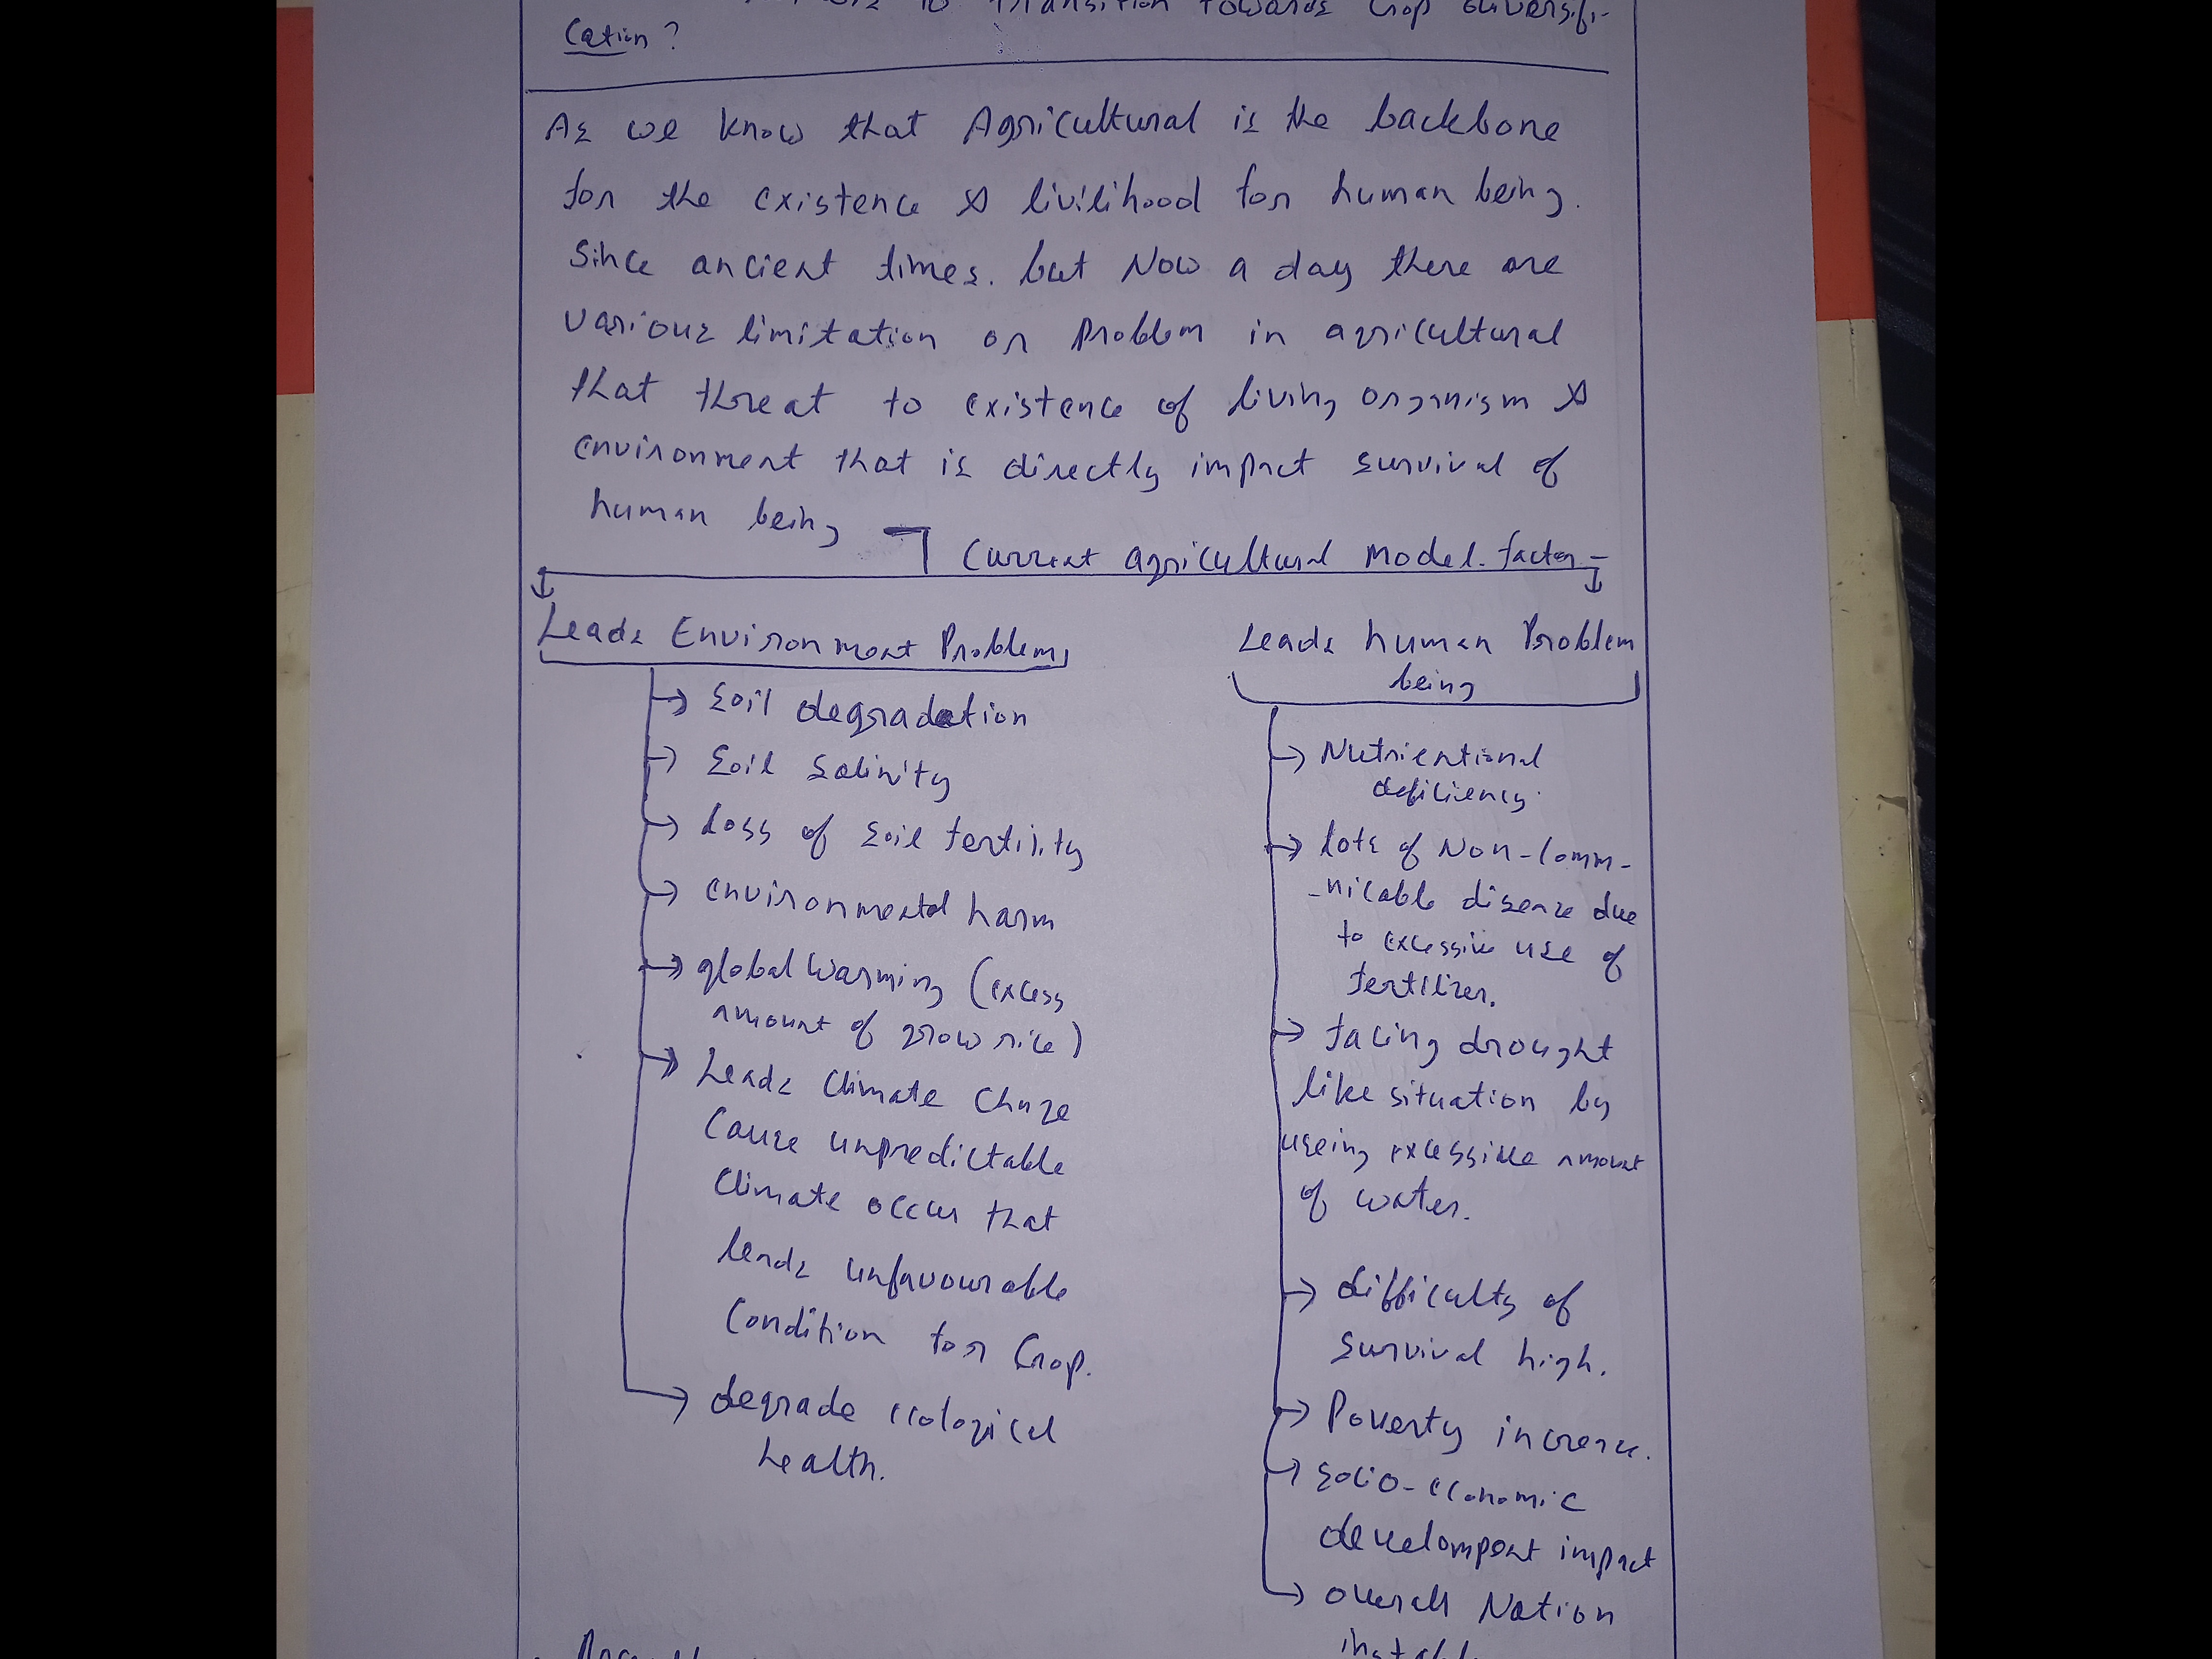 to transition towards Crop diversifi-
cation ?
As we know that Agricultural is the backbone
for the existence & livilihood for human being.
Since ancient times. but Now a day there are
various limitation or Problem in agricultural
that threat to existence of living organism &
environment that is directly impact survival of
human being
Current agricultural Model. factor -
Leads Environment Problems
Soil degradation
Soil salinity
Loss of soil fertility
environmental harm
global warming (excess
amount of grow rice)
Leads climate change
cause unpredictable
climate occur that
leads unfavourable
condition for Crop.
degrade ecological
health.
Leads human Problem
being
Nutrientional
deficiency.
lots of Non-comm-
-nicable disease due
to excessive use of
fertilizer.
facing drought
like situation by
useing excessive amount
of water.
difficulty of
survival high.
Poverty increase.
socio-economic
develompent impact
overall Nation